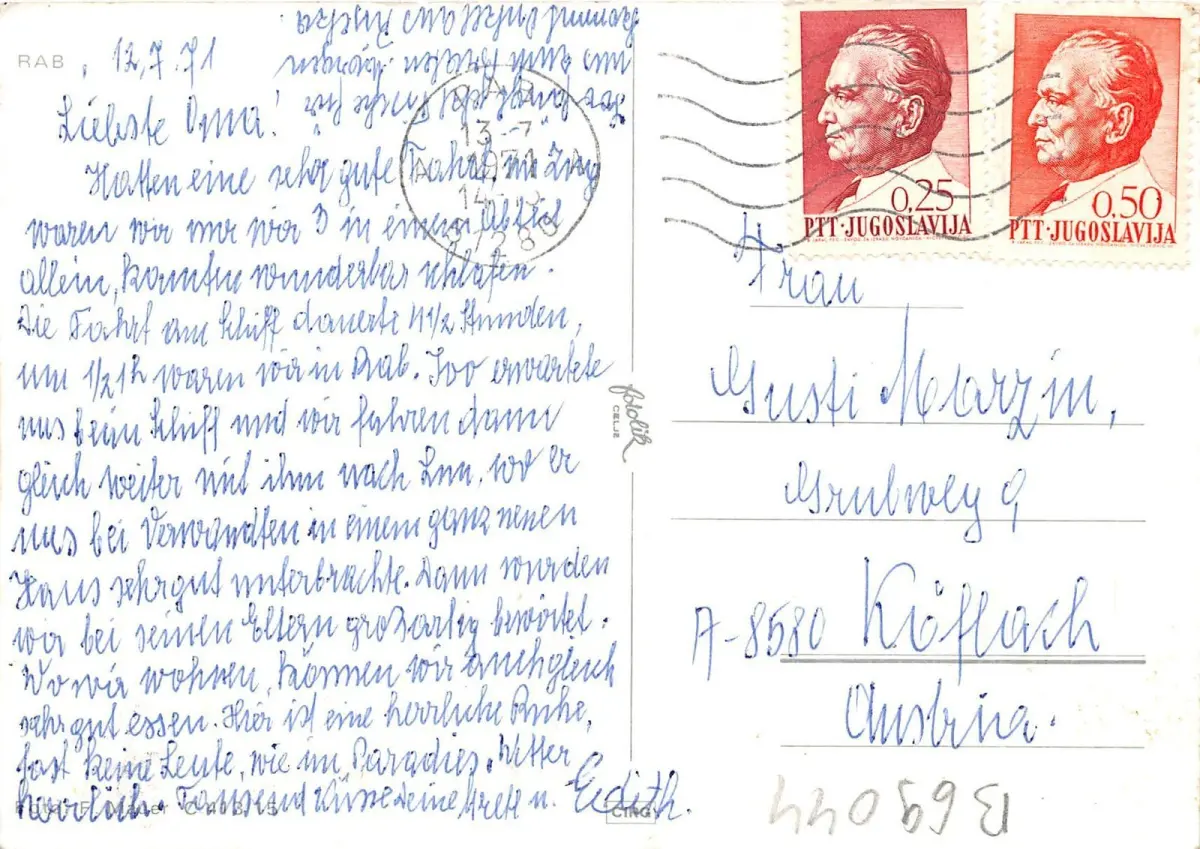 RAB, 12.7.71
Liebste Oma!
Hatten eine sehr gute Fahrt, im Zug
waren wir nur wir 3 in einem Abteil
allein, konnten wunderbar schlafen.
Die Fahrt am Schiff dauerte 4 1/2 Stunden,
um 1/2 1h waren wir in Rab. Ivo erwartete
uns beim Schiff und wir fuhren dann
gleich weiter mit ihm nach Lun, wo er
uns bei Verwandten in einem ganz neuen
Haus sehr gut unterbrachte. Dann wurden
wir bei seinen Eltern großartig bewirtet.
Wo wir wohnen, können wir auch gleich
sehr gut essen. Hier ist eine herrliche Ruhe,
fast keine Leute, wie im Paradies. Wetter
herrlich. Tausend Küsse Deine Grete u. Edith.
13-7
1971
14
51280
0,25
PTT·JUGOSLAVIJA
0,50
PTT·JUGOSLAVIJA
fotolik
CELJE
Frau
Gusti Marzin,
Grubweg 9
A-8580 Köflach
Austria.
CING